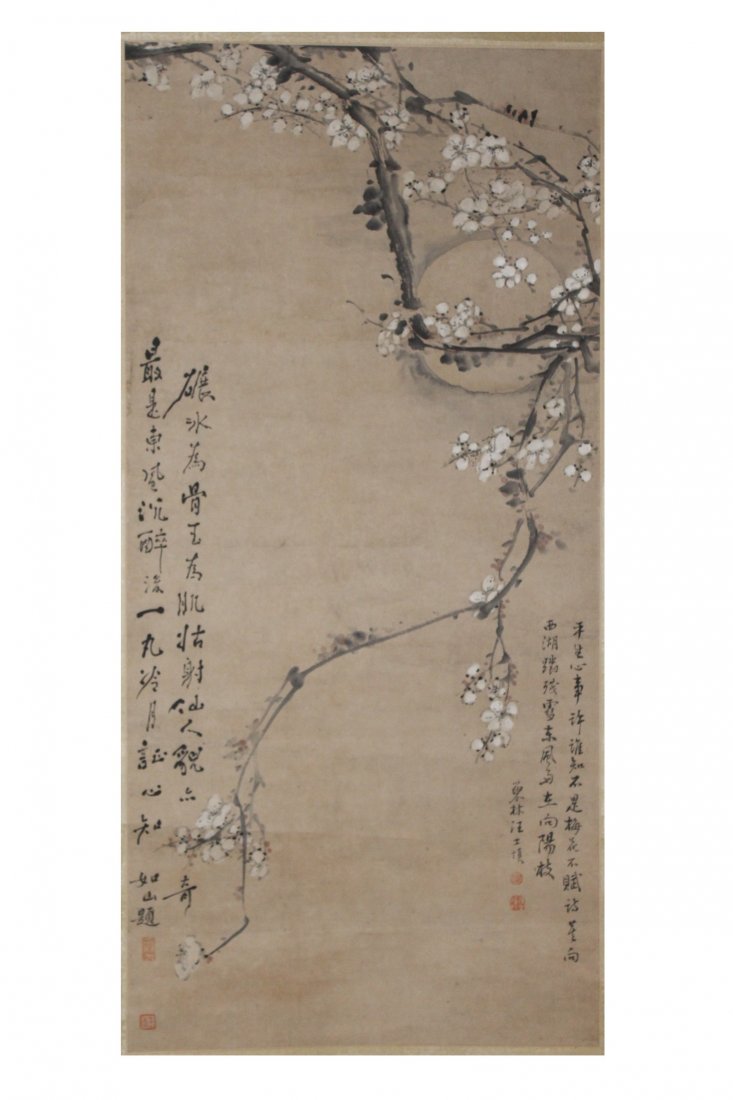 平生心事許誰知不是梅花不賦詩莫向
西湖踏殘雪東風多在向陽枝
巢林汪士慎
碾冰為骨玉為肌姑射仙人貌亦奇
最是東風沉醉後一丸冷月証心知
如山題